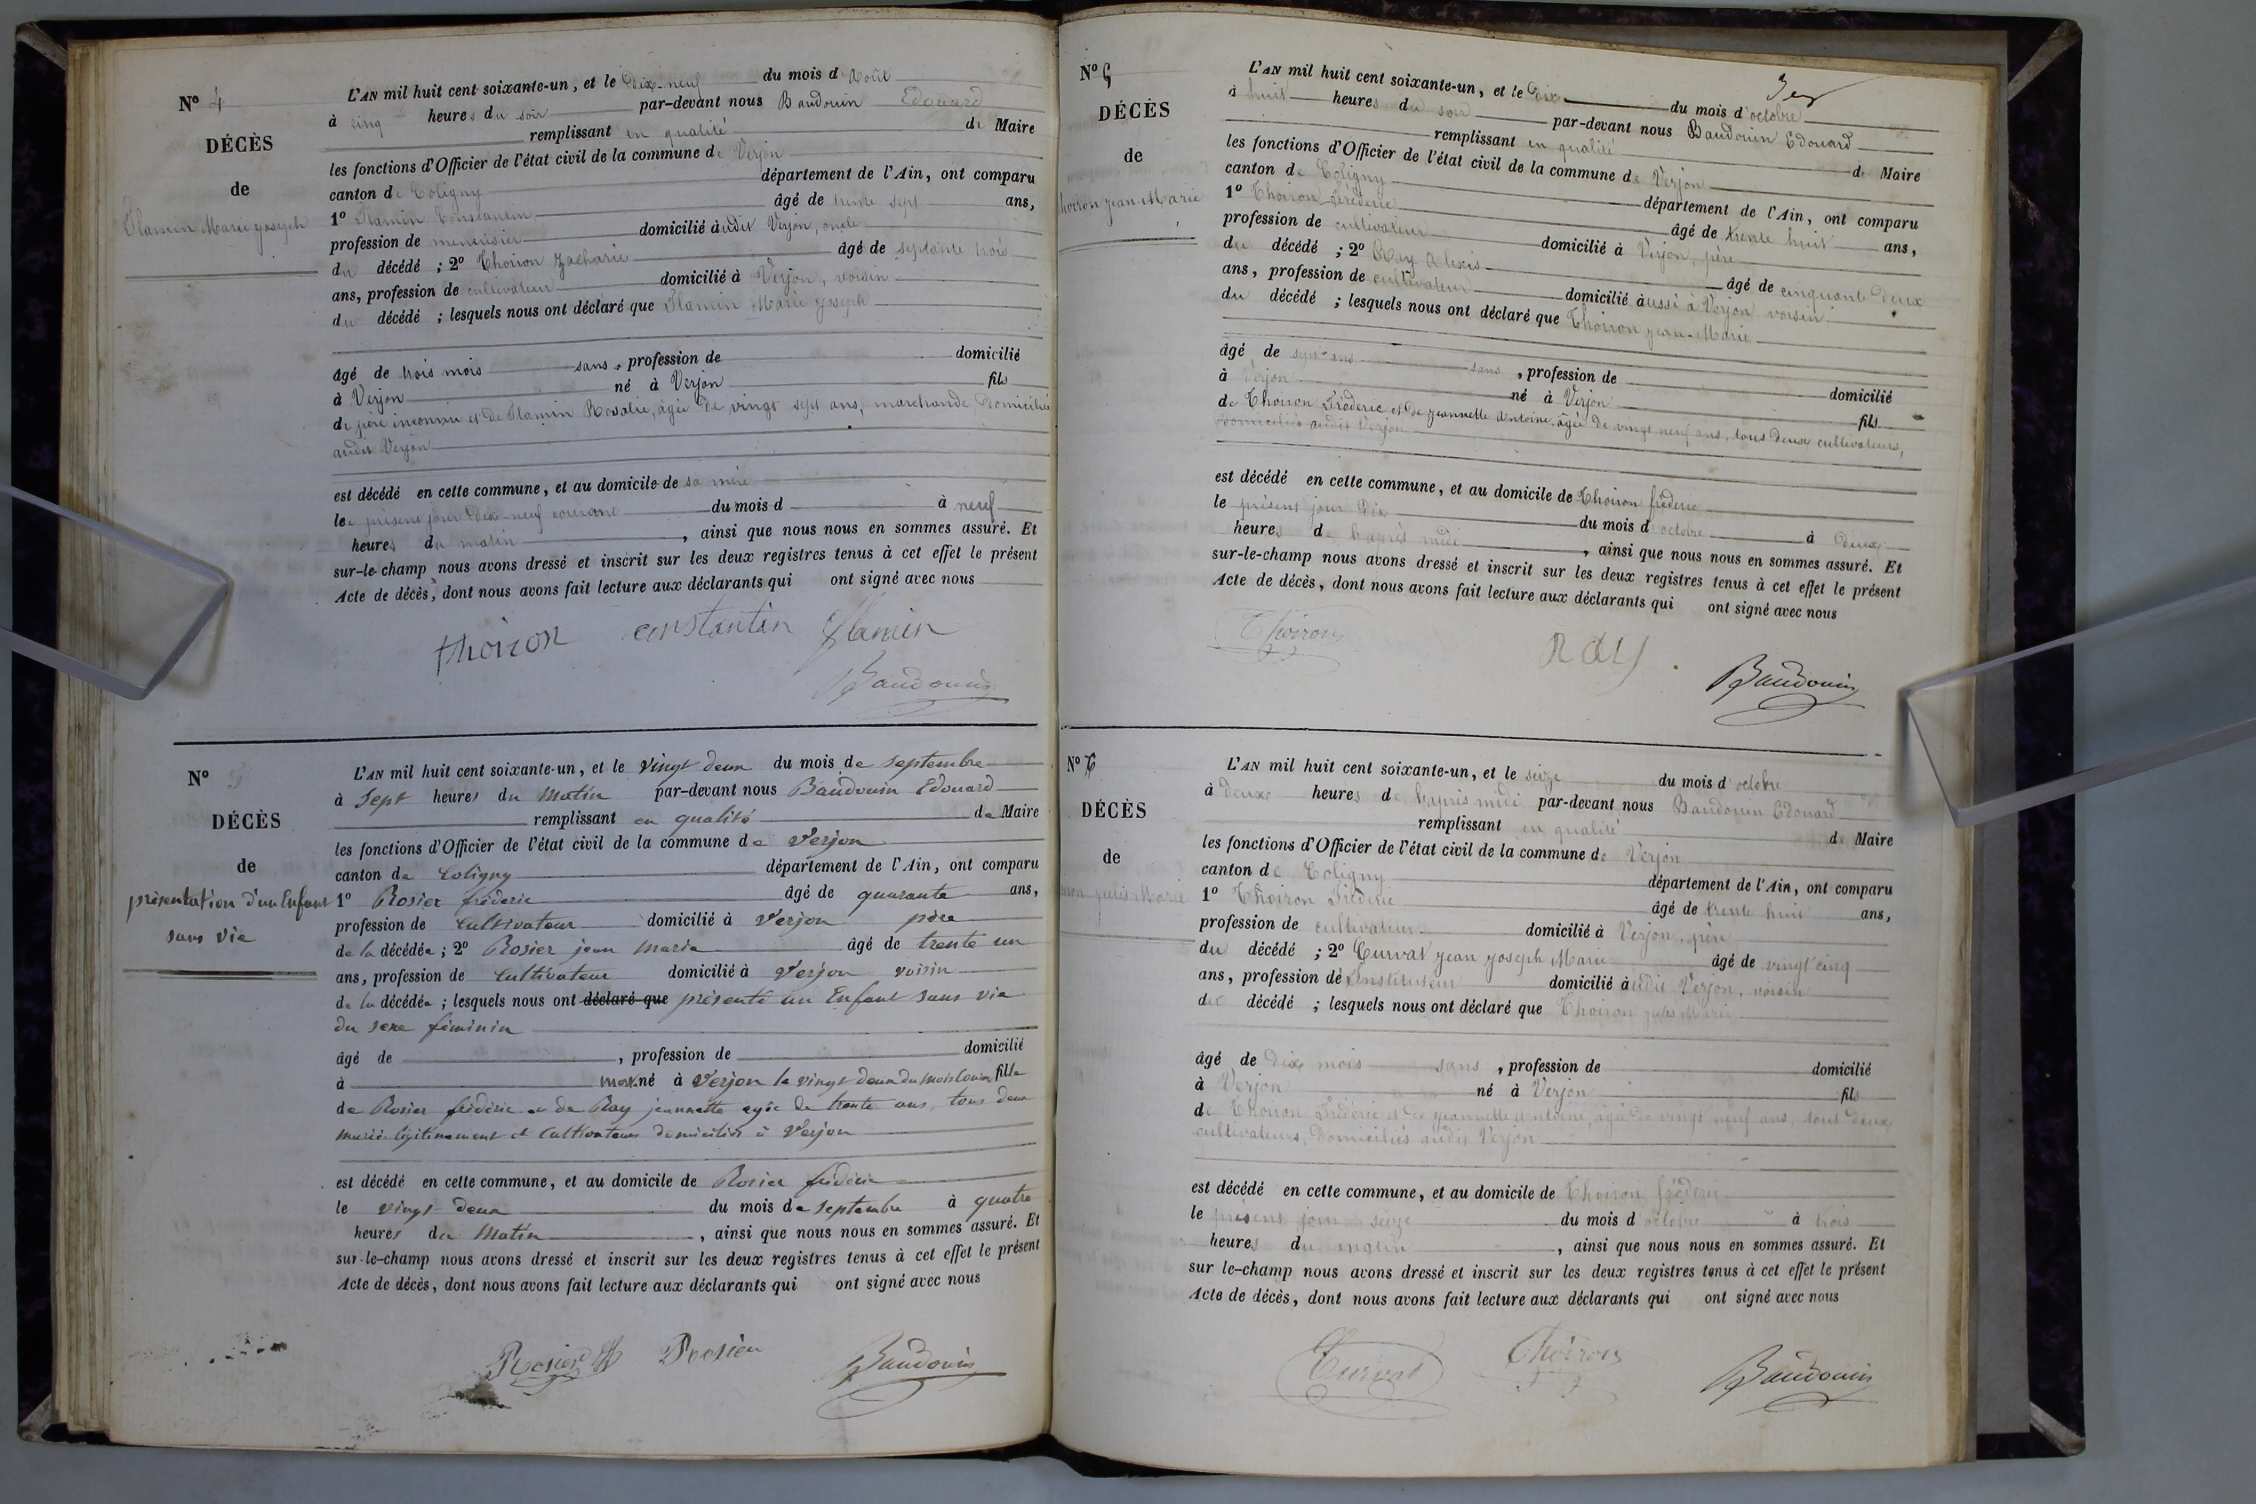 N° 4
DÉCÈS
de
Flamin Marie Joseph
L'AN mil huit cent soixante-un, et le Dix-neuf du mois d'Août
à cinq heures du soir par-devant nous Baudouin Edouard
remplissant en qualité de Maire
les fonctions d'Officier de l'état civil de la commune de Verjon
canton de Coligny département de l'Ain, ont comparu
1° Flamin Constantin âgé de trente sept ans,
profession de menuisier domicilié audit Verjon, oncle
du décédé ; 2° Thoiron Zacharie âgé de septante trois
ans, profession de cultivateur domicilié à Verjon, voisin
du décédé ; lesquels nous ont déclaré que Flamin Marie Joseph
âgé de trois mois sans, profession de domicilié
à Verjon né à Verjon fils
de père inconnu et de Flamin Rosalie, âgée de vingt sept ans, marchande Domiciliée
audit Verjon
est décédé en cette commune, et au domicile de sa mère
le présent jour Dix-neuf courant du mois d à neuf
heures du matin, ainsi que nous nous en sommes assuré. Et
sur-le-champ nous avons dressé et inscrit sur les deux registres tenus à cet effet le présent
Acte de décès, dont nous avons fait lecture aux déclarants qui ont signé avec nous
thoiron constantin flamin
Baudouin
N° 5
DÉCÈS
de
présentation d'un Enfant
sans vie
L'AN mil huit cent soixante-un, et le vingt deux du mois de septembre
à Sept heures du Matin par-devant nous Baudouin Edouard
remplissant en qualité de Maire
les fonctions d'Officier de l'état civil de la commune de Verjon
canton de Coligny département de l'Ain, ont comparu
1° Rosier fréderic âgé de quarante ans,
profession de Cultivateur domicilié à Verjon père
de la décédée ; 2° Rosier jean Marie âgé de trente un
ans, profession de Cultivateur domicilié à Verjon voisin
de la décédée ; lesquels nous ont déclaré que présenté un Enfant sans vie
du sexe féminin
âgé de , profession de domicilié
à mort né à Verjon le vingt deux du mois Courant fille
de Rosier fréderic et de Ray jeannette agée de trente ans, tous deux
mariés légitimement et Cultivateurs domiciliés à Verjon
est décédé en cette commune, et au domicile de Rosier fréderic
le vingt deux du mois de septembre à quatre
heures du Matin, ainsi que nous nous en sommes assuré. Et
sur-le-champ nous avons dressé et inscrit sur les deux registres tenus à cet effet le présent
Acte de décès, dont nous avons fait lecture aux déclarants qui ont signé avec nous
Rosier Rosier Baudouin
N° 5
DÉCÈS
de
hoiron jean Marie
L'AN mil huit cent soixante-un, et le Dix du mois d'octobre
à huit heures du soir par-devant nous Baudouin Edouard
remplissant en qualité de Maire
les fonctions d'Officier de l'état civil de la commune de Verjon
canton de Coligny département de l'Ain, ont comparu
1° Thoiron Fréderic âgé de trente huit ans,
profession de cultivateur domicilié à Verjon, père
du décédé ; 2° Ray Alexis âgé de cinquante Deux
ans, profession de cultivateur domicilié aussi à Verjon voisin
du décédé ; lesquels nous ont déclaré que Thoiron jean-Marie
âgé de sept ans sans, profession de domicilié
à Verjon né à Verjon fils
de Thoiron Fréderic et de jeannette Antoine âgée de vingt neuf ans, tous Deux cultivateurs,
Domiciliés audit Verjon
est décédé en cette commune, et au domicile de Thoiron fréderic
le présent jour Dix du mois d'octobre à Deux
heures de l'après midi, ainsi que nous nous en sommes assuré. Et
sur-le-champ nous avons dressé et inscrit sur les deux registres tenus à cet effet le présent
Acte de décès, dont nous avons fait lecture aux déclarants qui ont signé avec nous
Thoiron RAY Baudouin
N° 6
DÉCÈS
de
jules Marie
L'AN mil huit cent soixante-un, et le seize du mois d'octobre
à Deux heures de l'après midi par-devant nous Baudouin Edouard
remplissant en qualité de Maire
les fonctions d'Officier de l'état civil de la commune de Verjon
canton de Coligny département de l'Ain, ont comparu
1° Thoiron Fréderic âgé de trente huit ans,
profession de cultivateur domicilié à Verjon, père
du décédé ; 2° Curvat jean joseph Marie âgé de vingt cinq
ans, profession de Instituteur domicilié audit Verjon, voisin
du décédé ; lesquels nous ont déclaré que Thoiron jules Marie
âgé de Dix mois sans, profession de domicilié
à Verjon né à Verjon fils
de Thoiron Fréderic et de jeannette Antoine, âgée de vingt neuf ans, tous Deux
cultivateurs, Domiciliés audit Verjon
est décédé en cette commune, et au domicile de Thoiron fréderic
le présent jour seize du mois d'octobre à trois
heures du matin, ainsi que nous nous en sommes assuré. Et
sur le-champ nous avons dressé et inscrit sur les deux registres tenus à cet effet le présent
Acte de décès, dont nous avons fait lecture aux déclarants qui ont signé avec nous
Curvat Thoiron Baudouin